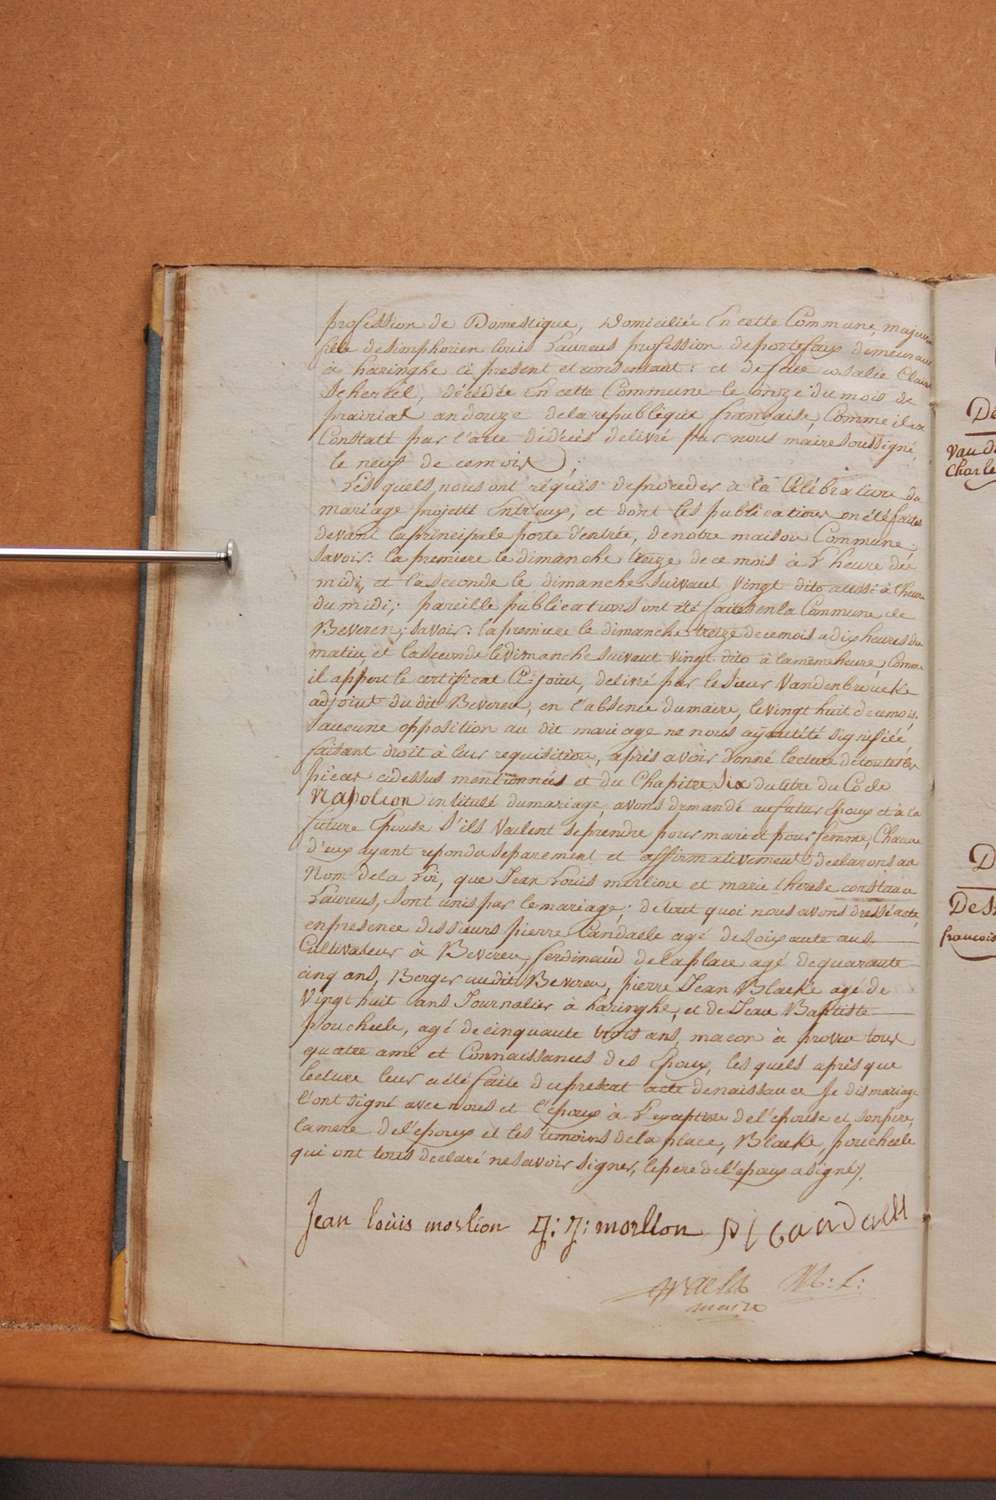 profession de Domestique, Domiciliée En cette Commune, majeure
fille de simphorien Louis Laureus profession de portefaix demeurant
à haringhe ci present et consentant: et de feue rosalie Claire
decédée En cette Commune le onze du mois de
prairial an douze de la republique française, Comme il a
Constatt par l'acte décès delivré par nous maire soussigné,
le neuf de ce mois;
Les quels nous ont réquis de proceder à la Célébration du
mariage projetté Entr'eux, et dont les publications on été faites
devant la principale porte d'entrée, de notre maison Commune
savoir: la premiere le dimanche treize de ce mois à L'heure de
midi, et la seconde le dimanche suivant vingt dito aussi à l'heure
du midi; pareille publications ont été faites en la Commune, de
Beveren; savoir: la premiere le dimanche treize de ce mois a dix heures du
matin, et la seconde le Dimanche suivant vingt dito à la meme heure, comme
il apport le certificat Ci-joint, délivré par le sieur Vandenbroucke
adjoint du dit Beveren, en l'absence du maire, le vingt huit de ce mois,
aucune opposition au dit mariage ne nous ayant été signifiée
faisant droit à leur requisition, après avoir donné lecture de toutes les
pièces cidessus mentionnées et du Chapitre six du titre du Code
Napoleon intitulé du mariage, avons demandé au futur Epoux et à la
future Epouse s'ils Veulent se prendre pour mari et pour femme, Chacun
d'eux ayant repondu separement et affirmativement; declarons au
Nom de la Loi, que Jean Louis morlion et marie therese constance
Laureus, sont unis par le mariage; de tout quoi nous avons dressé acte
en presence des sieurs pierre Candaele agé de soixante ans
Cultivateur à Beveren, ferdinand delaplace agé de quarante
cinq ans, Berger au dit Beveren, pierre Jean Blaeke age de
Vingt huit ans Journalier à haringhe, et de Jean Baptiste
poucheele, agé de cinquante trois ans, macon à proven tous
quatre ami et Connaissances des Epoux, les quels après que
lecture leur a été faite du present acte de naissance Je dis mariage
l'ont signé avec nous et l'epoux à L'exception de l'epouse et son pere,
la mere de l'epoux et les temoins delaplace, Blaeke, poucheele
qui ont tous declaré ne savoir signer, le pere de l'epoux a signé).
Jean loüis morlion J: J: morlion pi Candaele
maire
De
Vand
Charle
D
Des
francois